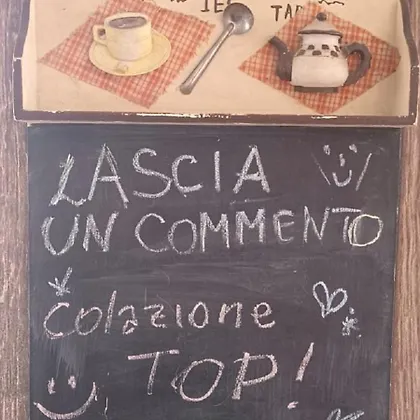 LASCIA
UN COMMENTO
colazione
TOP!